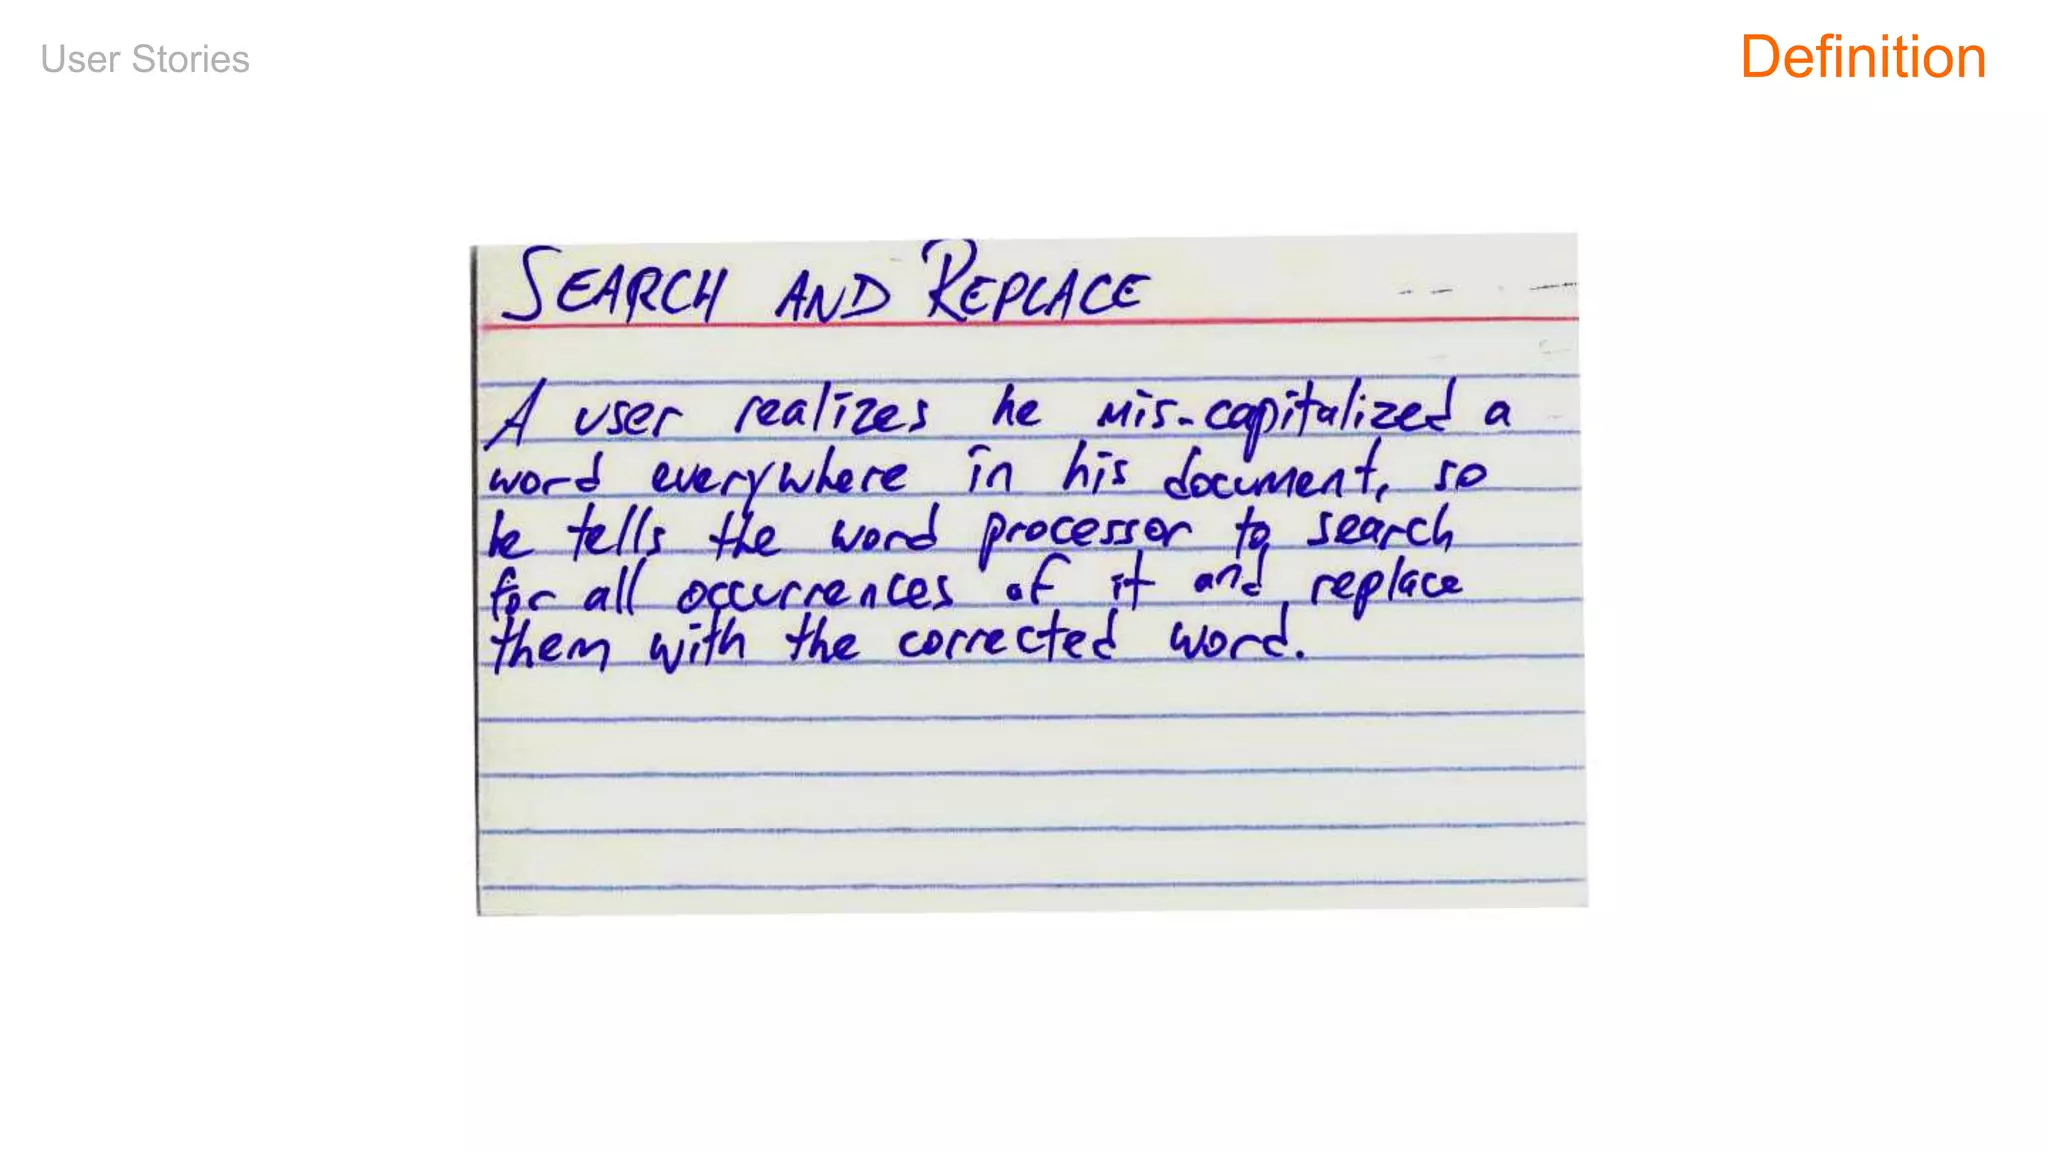 User Stories
Definition
SEARCH AND REPLACE
A user realizes he mis-capitalized a
word everywhere in his document, so
he tells the word processor to search
for all occurrences of it and replace
them with the corrected word.